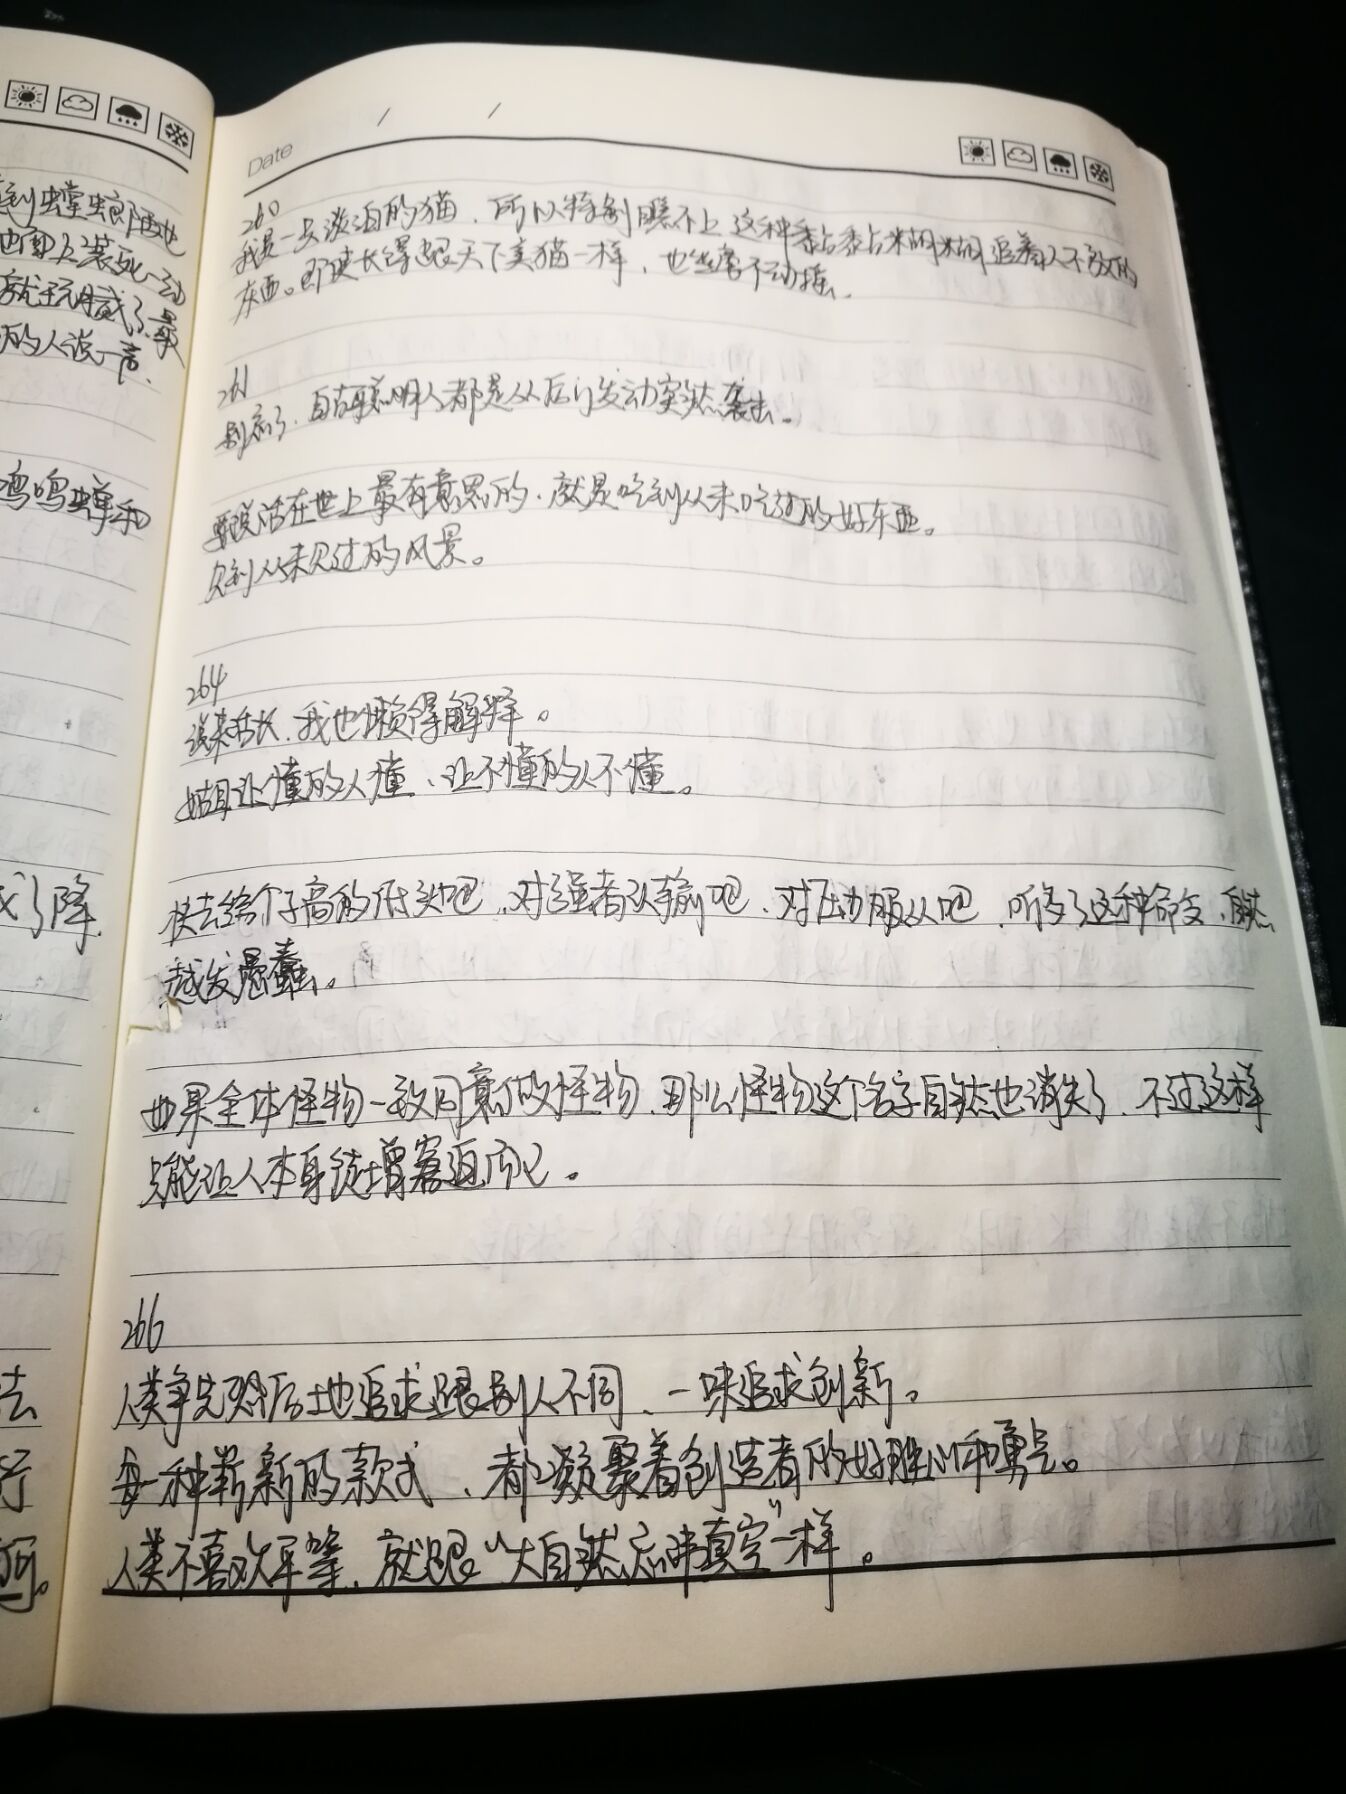 到螳螂陋地
就玩腻了、最
的人说一声、
鸣鸣蝉和
了降
法
行
Date / /
260
我是一只淡泊的猫、所以特别瞧不上这种黏黏糊糊追着人不放的
东西。即使长得跟天下美猫一样、也丝毫不动摇、
261
别病了、自古聪明人都是从后门发动突然袭击。
要说活在世上最有意思的、就是吃到从未吃过的好东西。
见到从未见过的风景。
264
说来话长、我也懒得解释。
姑且让懂的人懂、让不懂的人不懂。
快去给个子高的低头吧、对强者认输吧、对压力服从吧、听多了这种命令、自然
越发愚蠢。
如果全体怪物一致同意做怪物、那么怪物这个名字自然也消失了、不过这样
只能让人本身徒增窘迫而已。
266
人类争先恐后地追求跟别人不同、一味追求创新。
每一种崭新的款式、都凝聚着创造者的好胜心和勇气。
人类不喜欢平等、就跟“大自然忌讳真空”一样。